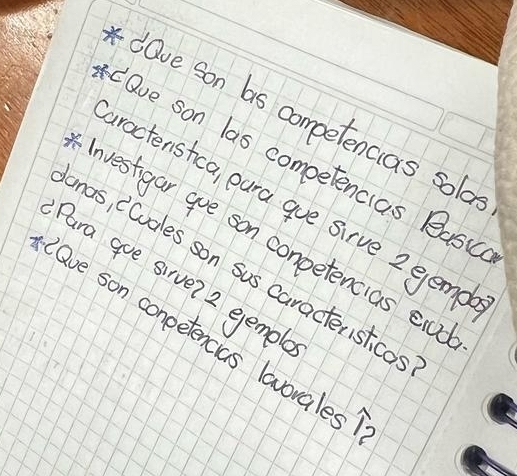 * ¿Que son las competencias solas,
* ¿Que son las competencias Basica
Caracteristica, para que sirve 2 ejemplos?
* Investigar que son conpetencias ciuda-
danas, ¿Cuales son sus caracteristicas?
¿Para que sirve? 2 ejemplos
* ¿Que son conpetencias lavorales i?